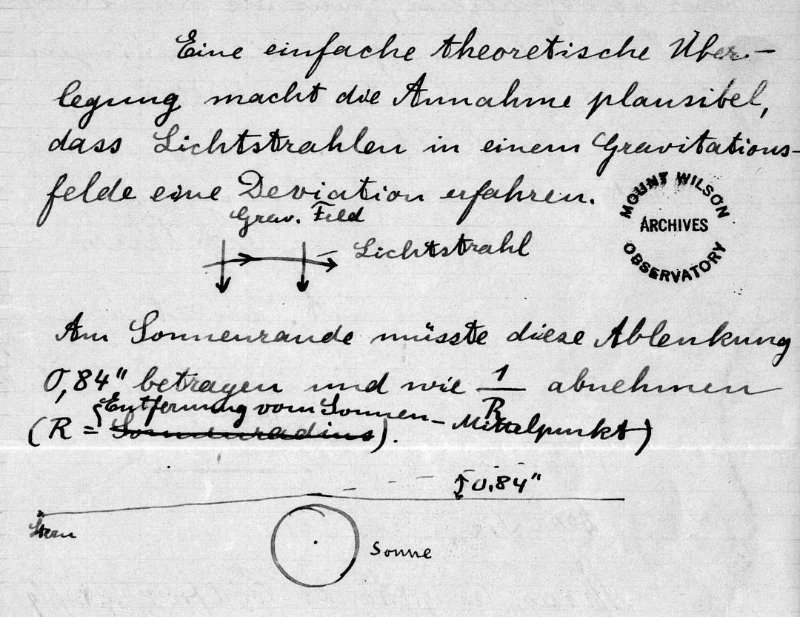 Eine einfache theoretische Über-
legung macht die Annahme plausibel,
dass Lichtstrahlen in einem Gravitations-
felde eine Deviation erfahren.
Grav. Feld
Lichtstrahl
MOUNT WILSON
ARCHIVES
OBSERVATORY
Am Sonnenrande müsste diese Ablenkung
0,84" betragen und wie 1/R abnehmen
Entfernung vom Sonnen-Mittelpunkt)
(R = Sonnenradius).
0.84"
Stern
Sonne